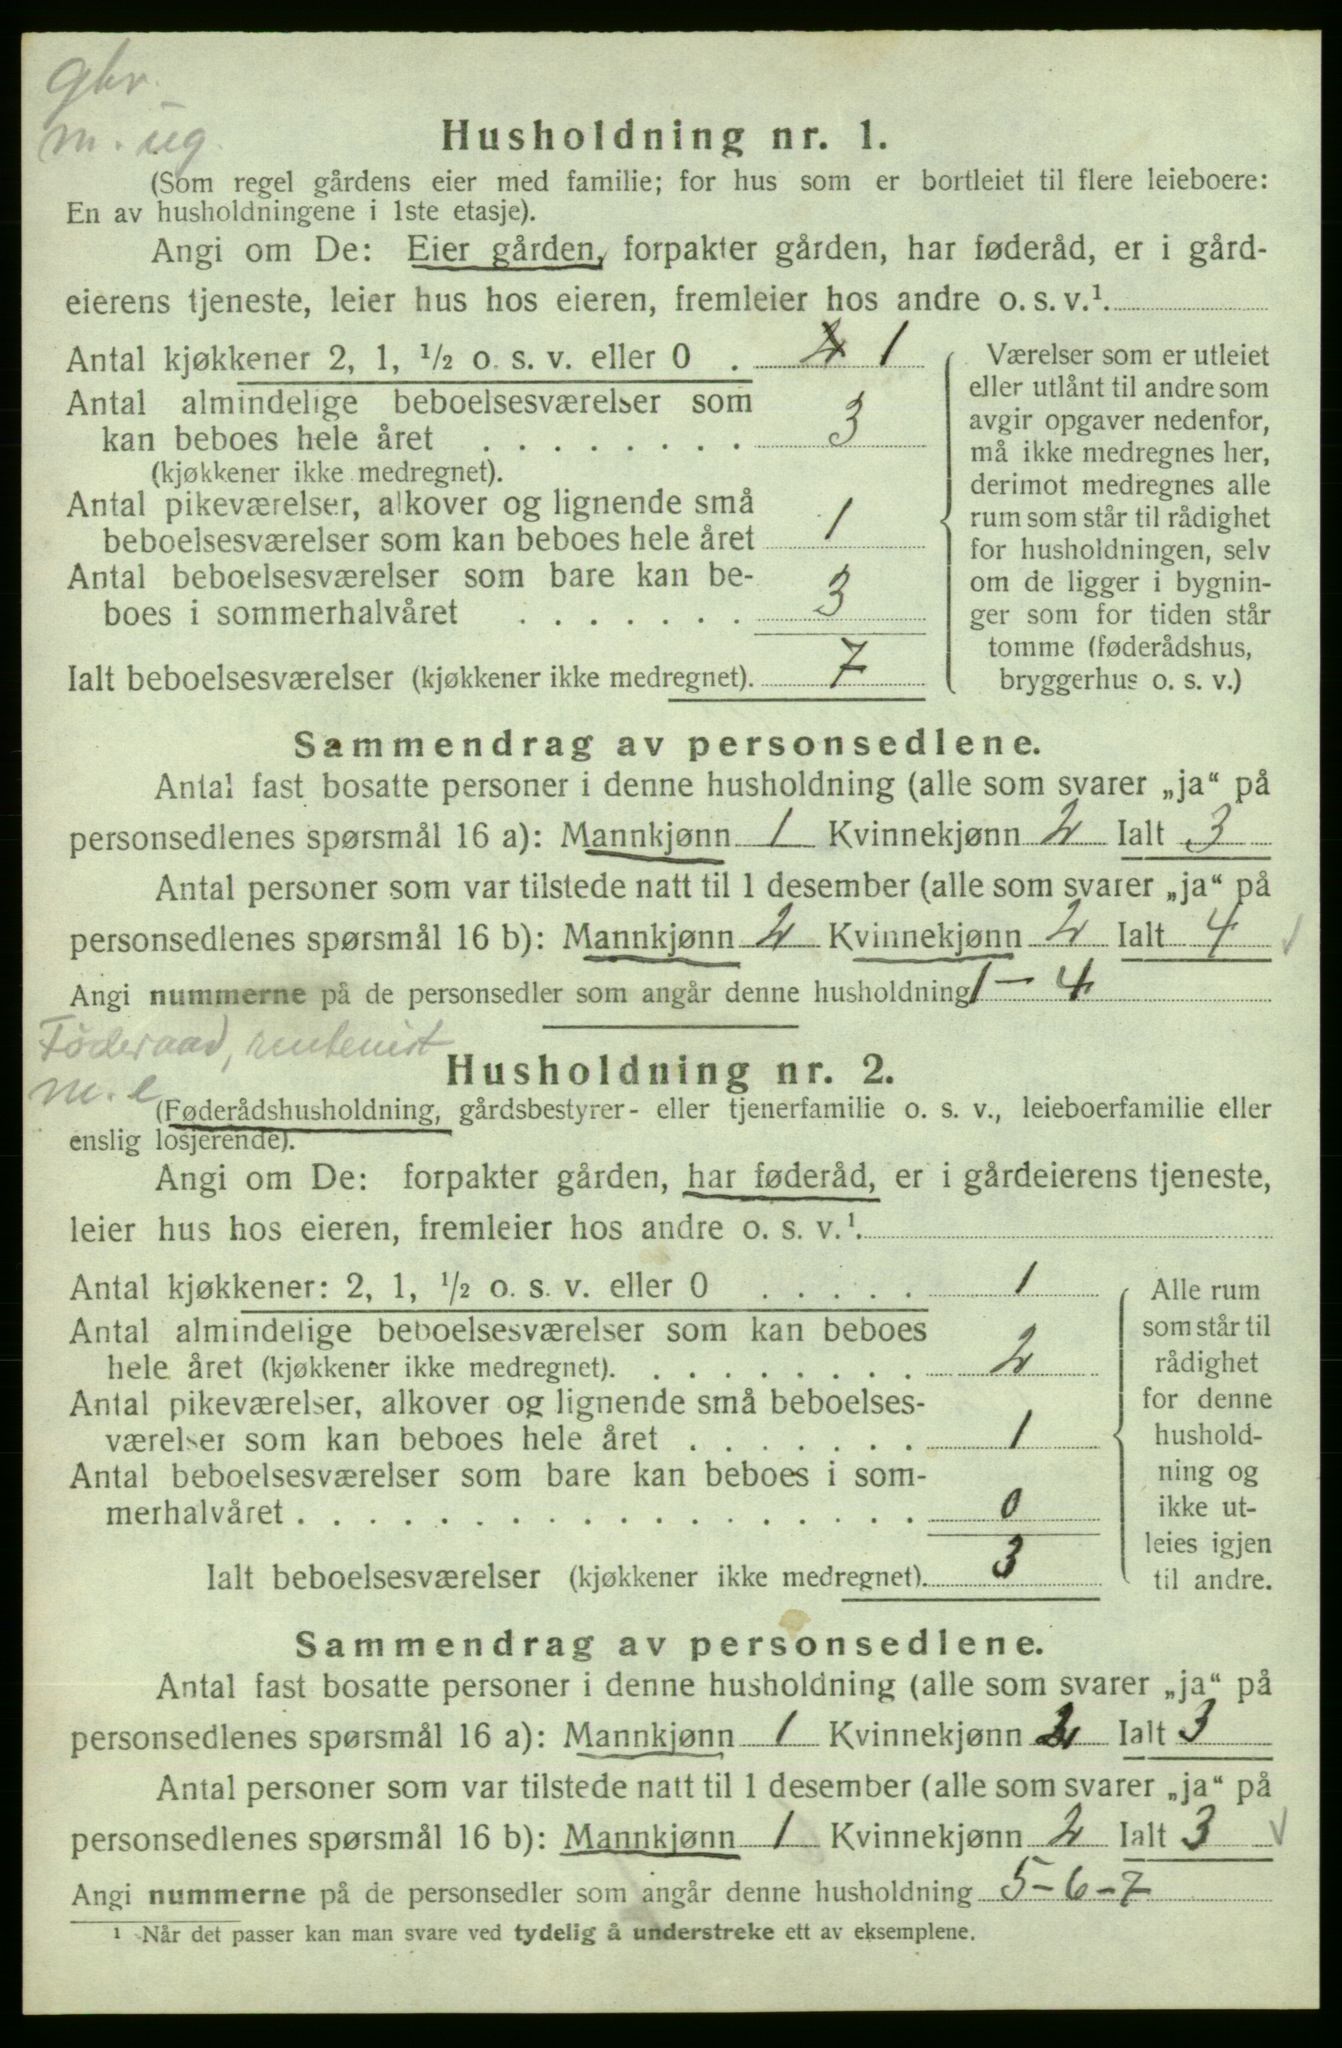 gbr.
m. ug.
Husholdning nr. 1.
(Som regel gårdens eier med familie; for hus som er bortleiet til flere leieboere:
En av husholdningene i 1ste etasje).
Angi om De: Eier gården, forpakter gården, har føderåd, er i gård-
eierens tjeneste, leier hus hos eieren, fremleier hos andre o. s. v.¹.
Antal kjøkkener 2, 1, ½ o. s. v. eller 0 . 1
Antal almindelige beboelsesværelser som
kan beboes hele året . . . . . . . . 3
(kjøkkener ikke medregnet).
Antal pikeværelser, alkover og lignende små
beboelsesværelser som kan beboes hele året 1
Antal beboelsesværelser som bare kan be-
boes i sommerhalvåret . . . . . . . 3
Ialt beboelsesværelser (kjøkkener ikke medregnet). 7
Værelser som er utleiet
eller utlånt til andre som
avgir opgaver nedenfor,
må ikke medregnes her,
derimot medregnes alle
rum som står til rådighet
for husholdningen, selv
om de ligger i bygnin-
ger som for tiden står
tomme (føderådshus,
bryggerhus o. s. v.)
Sammendrag av personsedlene.
Antal fast bosatte personer i denne husholdning (alle som svarer „ja“ på
personsedlenes spørsmål 16 a): Mannkjønn 1 Kvinnekjønn 2 Ialt 3
Antal personer som var tilstede natt til 1 desember (alle som svarer „ja“ på
personsedlenes spørsmål 16 b): Mannkjønn 2 Kvinnekjønn 2 Ialt 4 ✓
Angi nummerne på de personsedler som angår denne husholdning 1 – 4
Føderaad, rentenist
m. e
Husholdning nr. 2.
(Føderådshusholdning, gårdsbestyrer- eller tjenerfamilie o. s. v., leieboerfamilie eller
enslig losjerende).
Angi om De: forpakter gården, har føderåd, er i gårdeierens tjeneste,
leier hus hos eieren, fremleier hos andre o. s. v.¹.
Antal kjøkkener: 2, 1, ½ o. s. v. eller 0 . . . . . 1
Antal almindelige beboelsesværelser som kan beboes
hele året (kjøkkener ikke medregnet). . . . . . . . . 2
Antal pikeværelser, alkover og lignende små beboelses-
værelser som kan beboes hele året . . . . . . . 1
Antal beboelsesværelser som bare kan beboes i som-
merhalvåret . . . . . . . . . . . . . . . . . . 0
Ialt beboelsesværelser (kjøkkener ikke medregnet). 3
Alle rum
som står til
rådighet
for denne
hushold-
ning og
ikke ut-
leies igjen
til andre.
Sammendrag av personsedlene.
Antal fast bosatte personer i denne husholdning (alle som svarer „ja“ på
personsedlenes spørsmål 16 a): Mannkjønn 1 Kvinnekjønn 2 Ialt 3
Antal personer som var tilstede natt til 1 desember (alle som svarer „ja“ på
personsedlenes spørsmål 16 b): Mannkjønn 1 Kvinnekjønn 2 Ialt 3 ✓
Angi nummerne på de personsedler som angår denne husholdning 5-6-7
¹ Når det passer kan man svare ved tydelig å understreke ett av eksemplene.